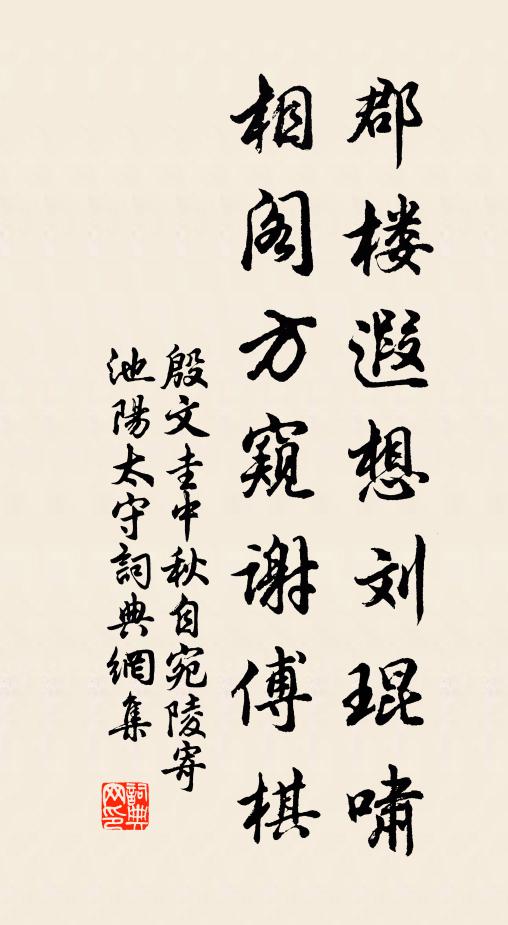 郡楼遐想刘琨啸
相阁方窥谢傅棋
殷文圭中秋自宛陵寄
池陽太守詞典網集
詞典網印